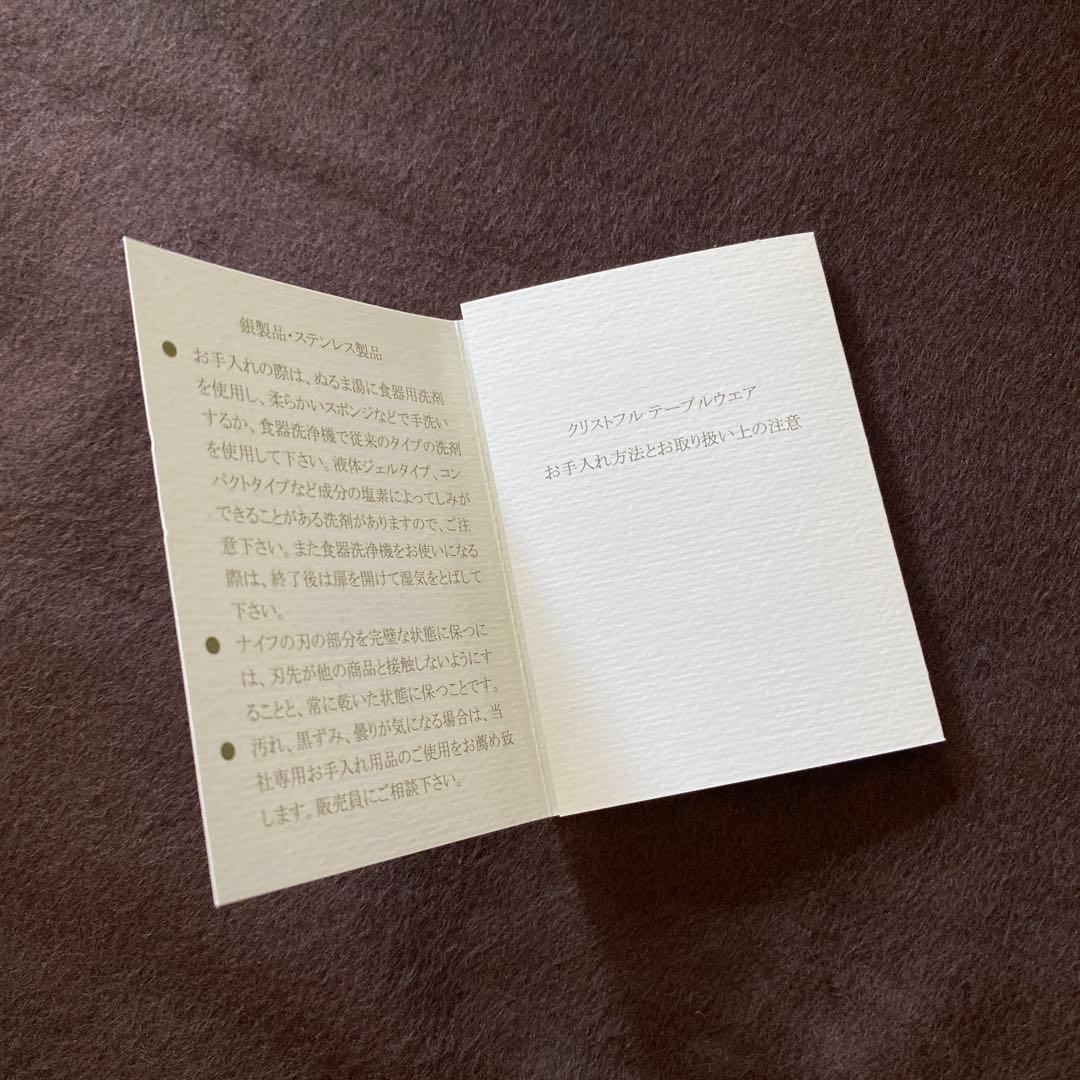 銀製品・ステンレス製品
● お手入れの際は、ぬるま湯に食器用洗剤
を使用し、柔らかいスポンジなどで手洗い
するか、食器洗浄機で従来のタイプの洗剤
を使用して下さい。液体ジェルタイプ、コン
パクトタイプなど成分の塩素によってしみが
できることがある洗剤がありますので、ご注
意下さい。また食器洗浄機をお使いになる
際は、終了後は扉を開けて湿気をとばして
下さい。
● ナイフの刃の部分を完璧な状態に保つに
は、刃先が他の商品と接触しないようにす
ることと、常に乾いた状態に保つことです。
● 汚れ、黒ずみ、曇りが気になる場合は、当
社専用お手入れ用品のご使用をお薦め致
します。販売員にご相談下さい。
クリストフル テーブルウエア
お手入れ方法とお取り扱い上の注意